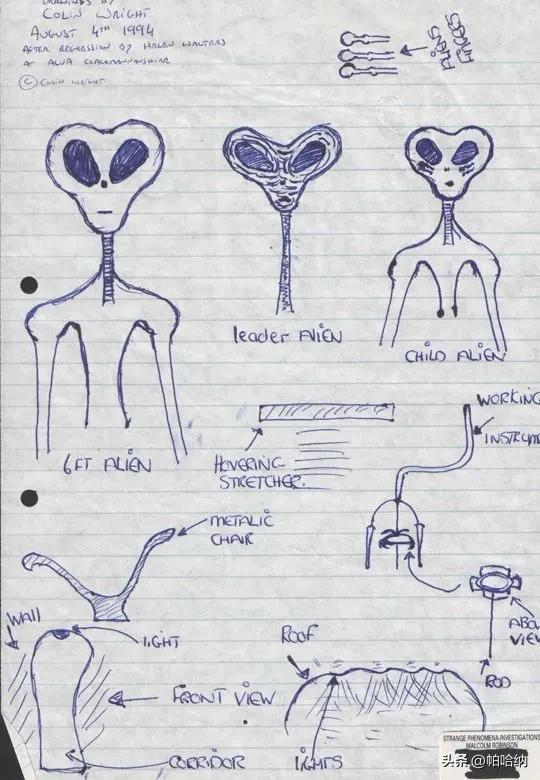 DRAWINGS BY
COLIN WRIGHT
AUGUST 4TH 1994
AFTER REGRESSION BY HELEN WALTERS
AT ALVA CLACKMANNANSHIRE
© COLIN WRIGHT
leader ALIEN
CHILD ALIEN
6FT ALIEN
HOVERING
STRETCHER.
WORKING
INSTRUM
METALIC
CHAIR
WALL
LIGHT
ROOF
ABO
VIEW
ROD
FRONT VIEW
CORRIDOR
LIGHTS
STRANGE PHENOMENA INVESTIGATIONS
MALCOLM ROBINSON
头条 @帕哈纳